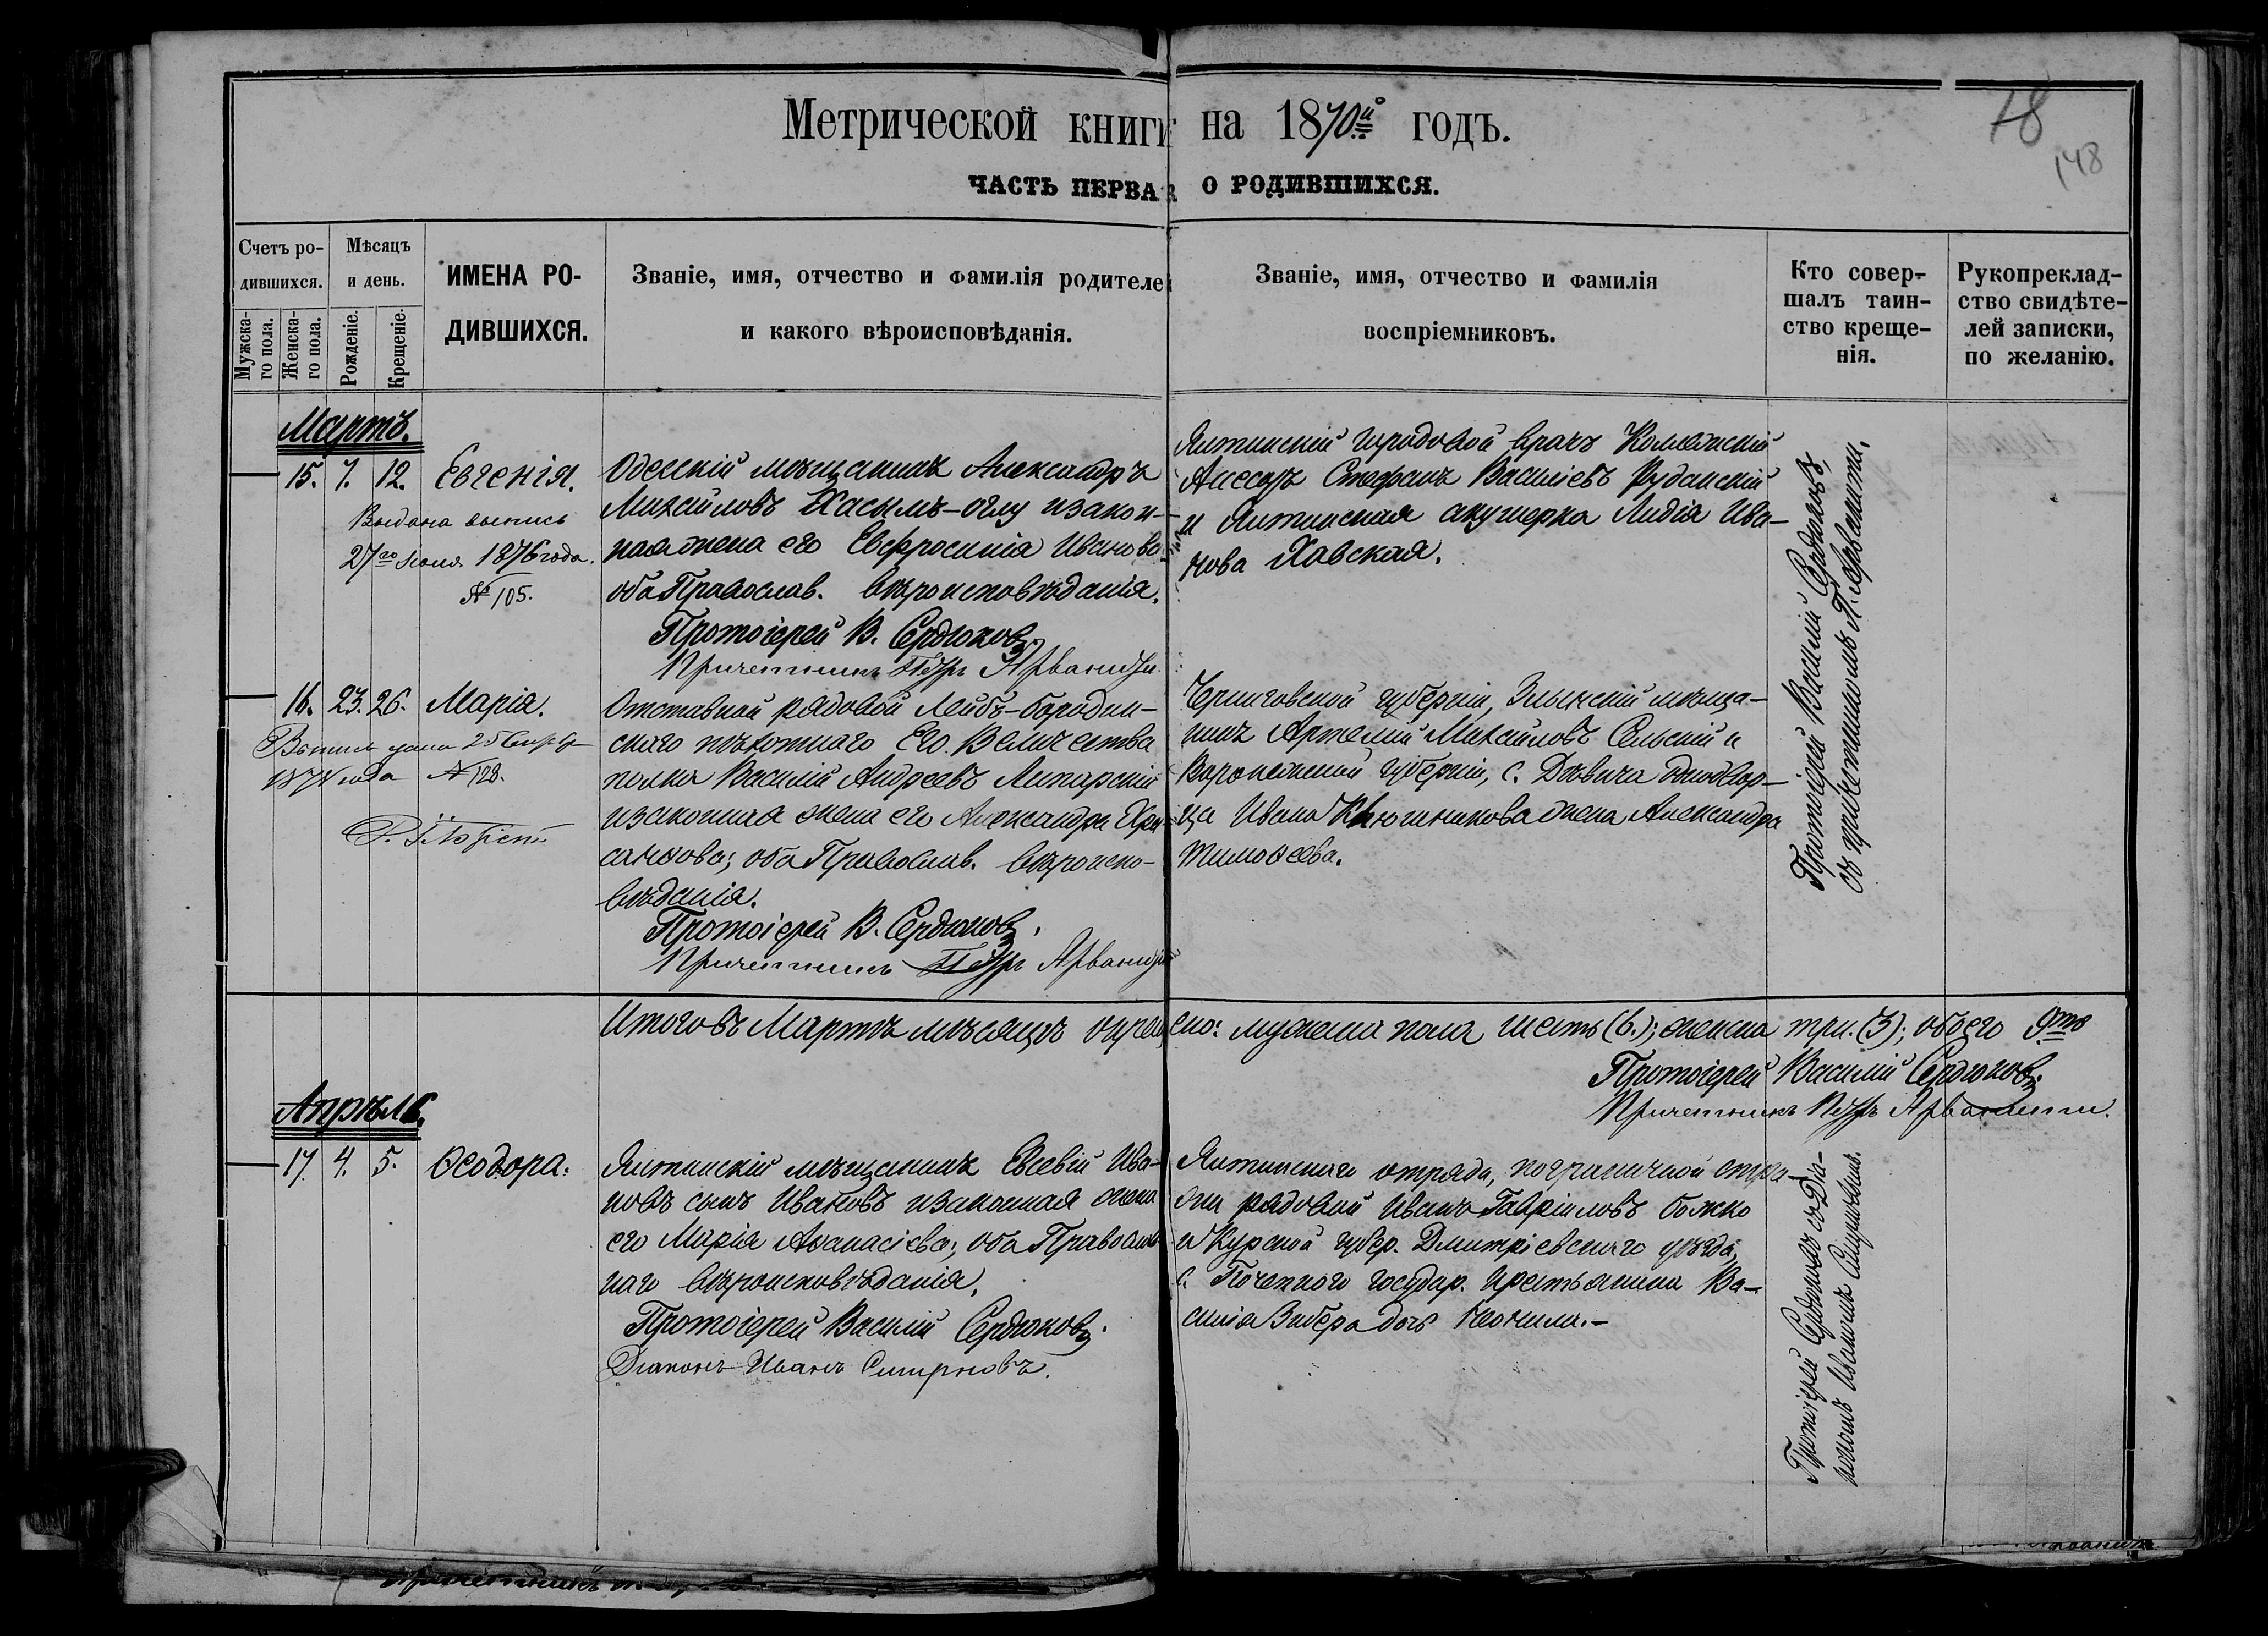 Метрической книги на 1870й годъ.
78
148
ЧАСТЬ ПЕРВАЯ О РОДИВШИХСЯ.
Счетъ ро-
дившихся.
Мужска-
го пола.
Женска-
го пола.
Мѣсяцъ
и день.
Рожденіе.
Крещеніе.
ИМЕНА РО-
ДИВШИХСЯ.
Званіе, имя, отчество и фамилія родителей
и какого вѣроисповѣданія.
Званіе, имя, отчество и фамилія
воспріемниковъ.
Кто совер-
шалъ таин-
ство креще-
нія.
Рукопреклад-
ство свидѣте-
лей записки,
по желанію.
Мартъ.
— 15. 7. 12. Евгенія.
Выдана выпись
27го Іюня 1876 года.
№ 105.
Одесскій мѣщанинъ Александръ
Михайловъ Хасымъ-оглу и закон-
ная жена его Евфросинія Иванова
оба Православ. вѣроисповѣданія.
Протоіерей В. Сердюковъ.
Причетникъ Петръ Арванити
Ялтинскій городовой врачъ Коллежскій
Ассесоръ Стефанъ Васильевъ Руданскій
и Ялтинская акушерка Лидія Ива-
нова Хавская.
Протоіерей Василій Сердюковъ,
съ причетникомъ П. Арванити.
— 16. 23. 26. Марія.
1878 года № 128.
Отставной рядовой Лейбъ-бородин-
скаго пѣхотнаго Его Величества
полка Василій Андреевъ Липарскій
и законная жена его Александра Хри-
санфова; оба Православ. вѣроиспо-
вѣданія.
Протоіерей В. Сердюковъ.
Причетникъ Петръ Арванити
Черниговской губерніи, Злынскій мѣща-
нинъ Артемій Михайловъ Сельскій и
Воронежской губерніи, с. Дѣвича однодвор-
ца Ивана Ключникова жена Александра
Тимофеева.
Итого въ Мартѣ мѣсяцѣ окрещено: мужеска пола шесть (6.); женска три. (3); обоего 9ть
Протоіерей Василій Сердюковъ.
Причетникъ Петръ Арванити.
Апрѣль.
— 17. 4. 5. Ѳеодора.
Ялтинскій мѣщанинъ Евсевій Ива-
новъ сынъ Ивановъ и законная жена
его Марія Аѳанасіева; оба Православ-
наго вѣроисповѣданія.
Протоіерей Василій Сердюковъ.
Діаконъ Иванъ Смирновъ.
Ялтинскаго отряда, пограничной стра-
жи рядовой Иванъ Гавріиловъ Божко
и Курской губер. Дмитріевскаго уѣзда,
с. Поченнаго государ. крестьянина Ва-
силія Зибера дочь Неонила.—
Протоіерей Сердюковъ съ Діа-
кономъ Иваномъ Смирновымъ.